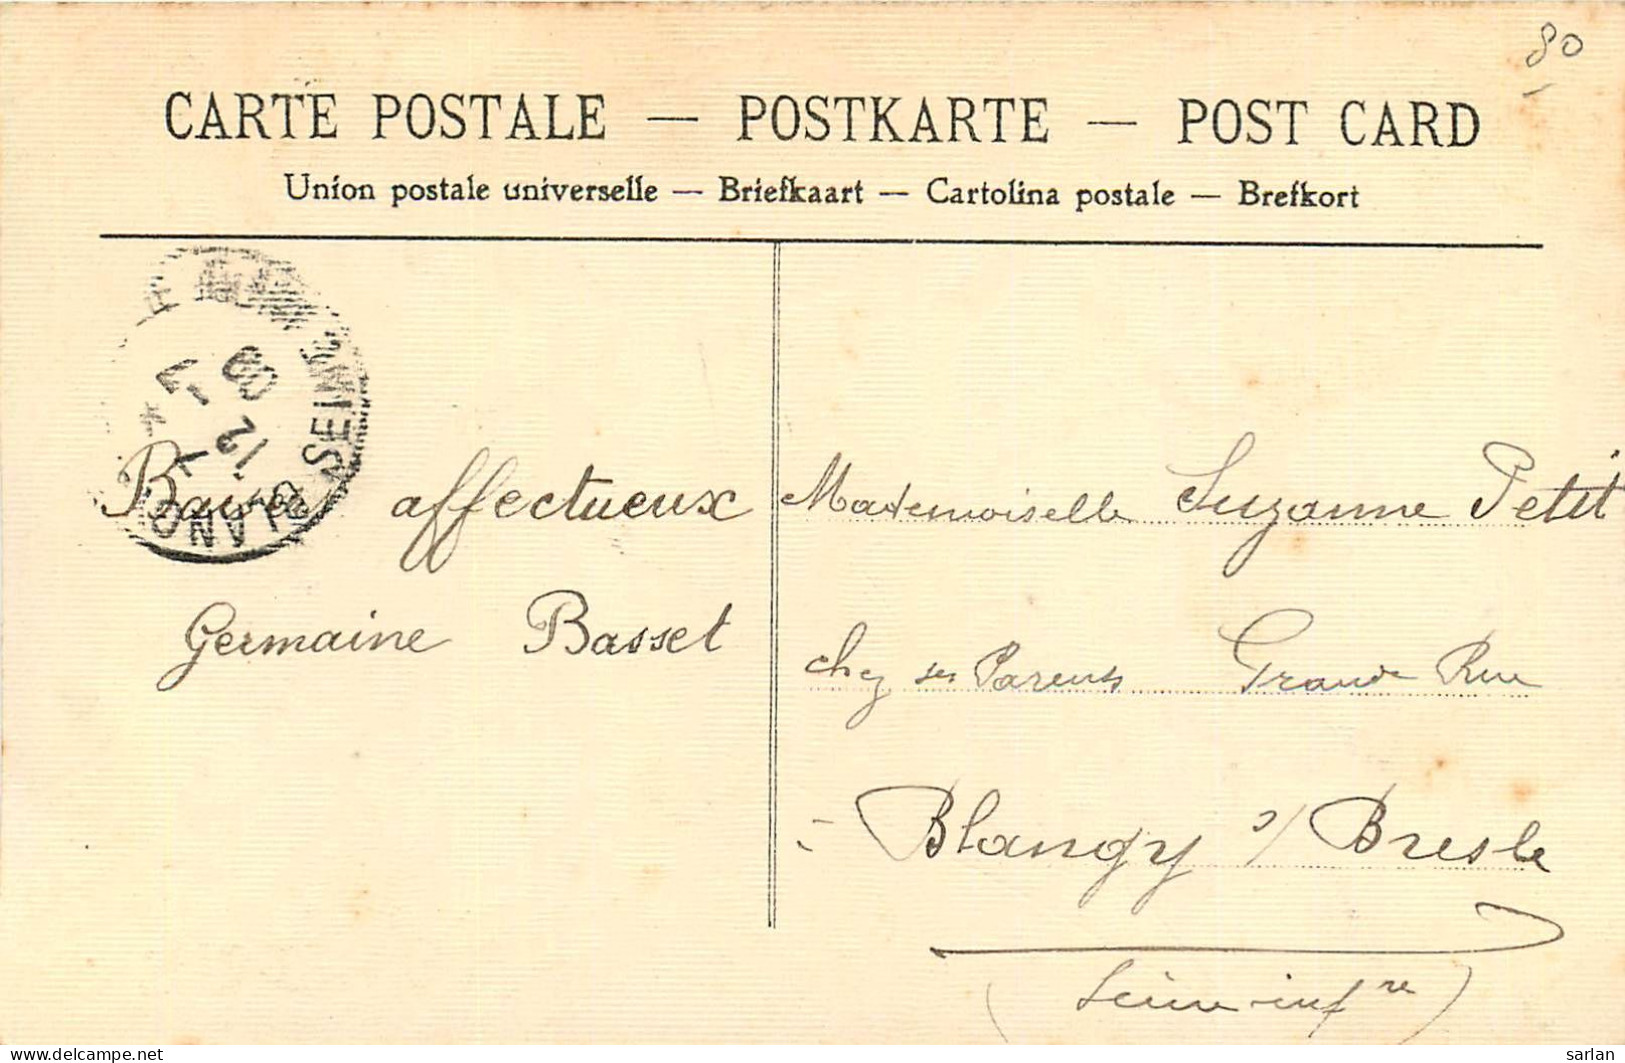 80
CARTE POSTALE — POSTKARTE — POST CARD
Union postale universelle — Briefkaart — Cartolina postale — Brefkort
12
08
SEINE
Baisers affectueux
Germaine Basset
Mademoiselle Suzanne Petit
chez ses Parents Grande Rue
- Blangy s/ Bresle
(Seine-infre)
delcampe.net
sarlan